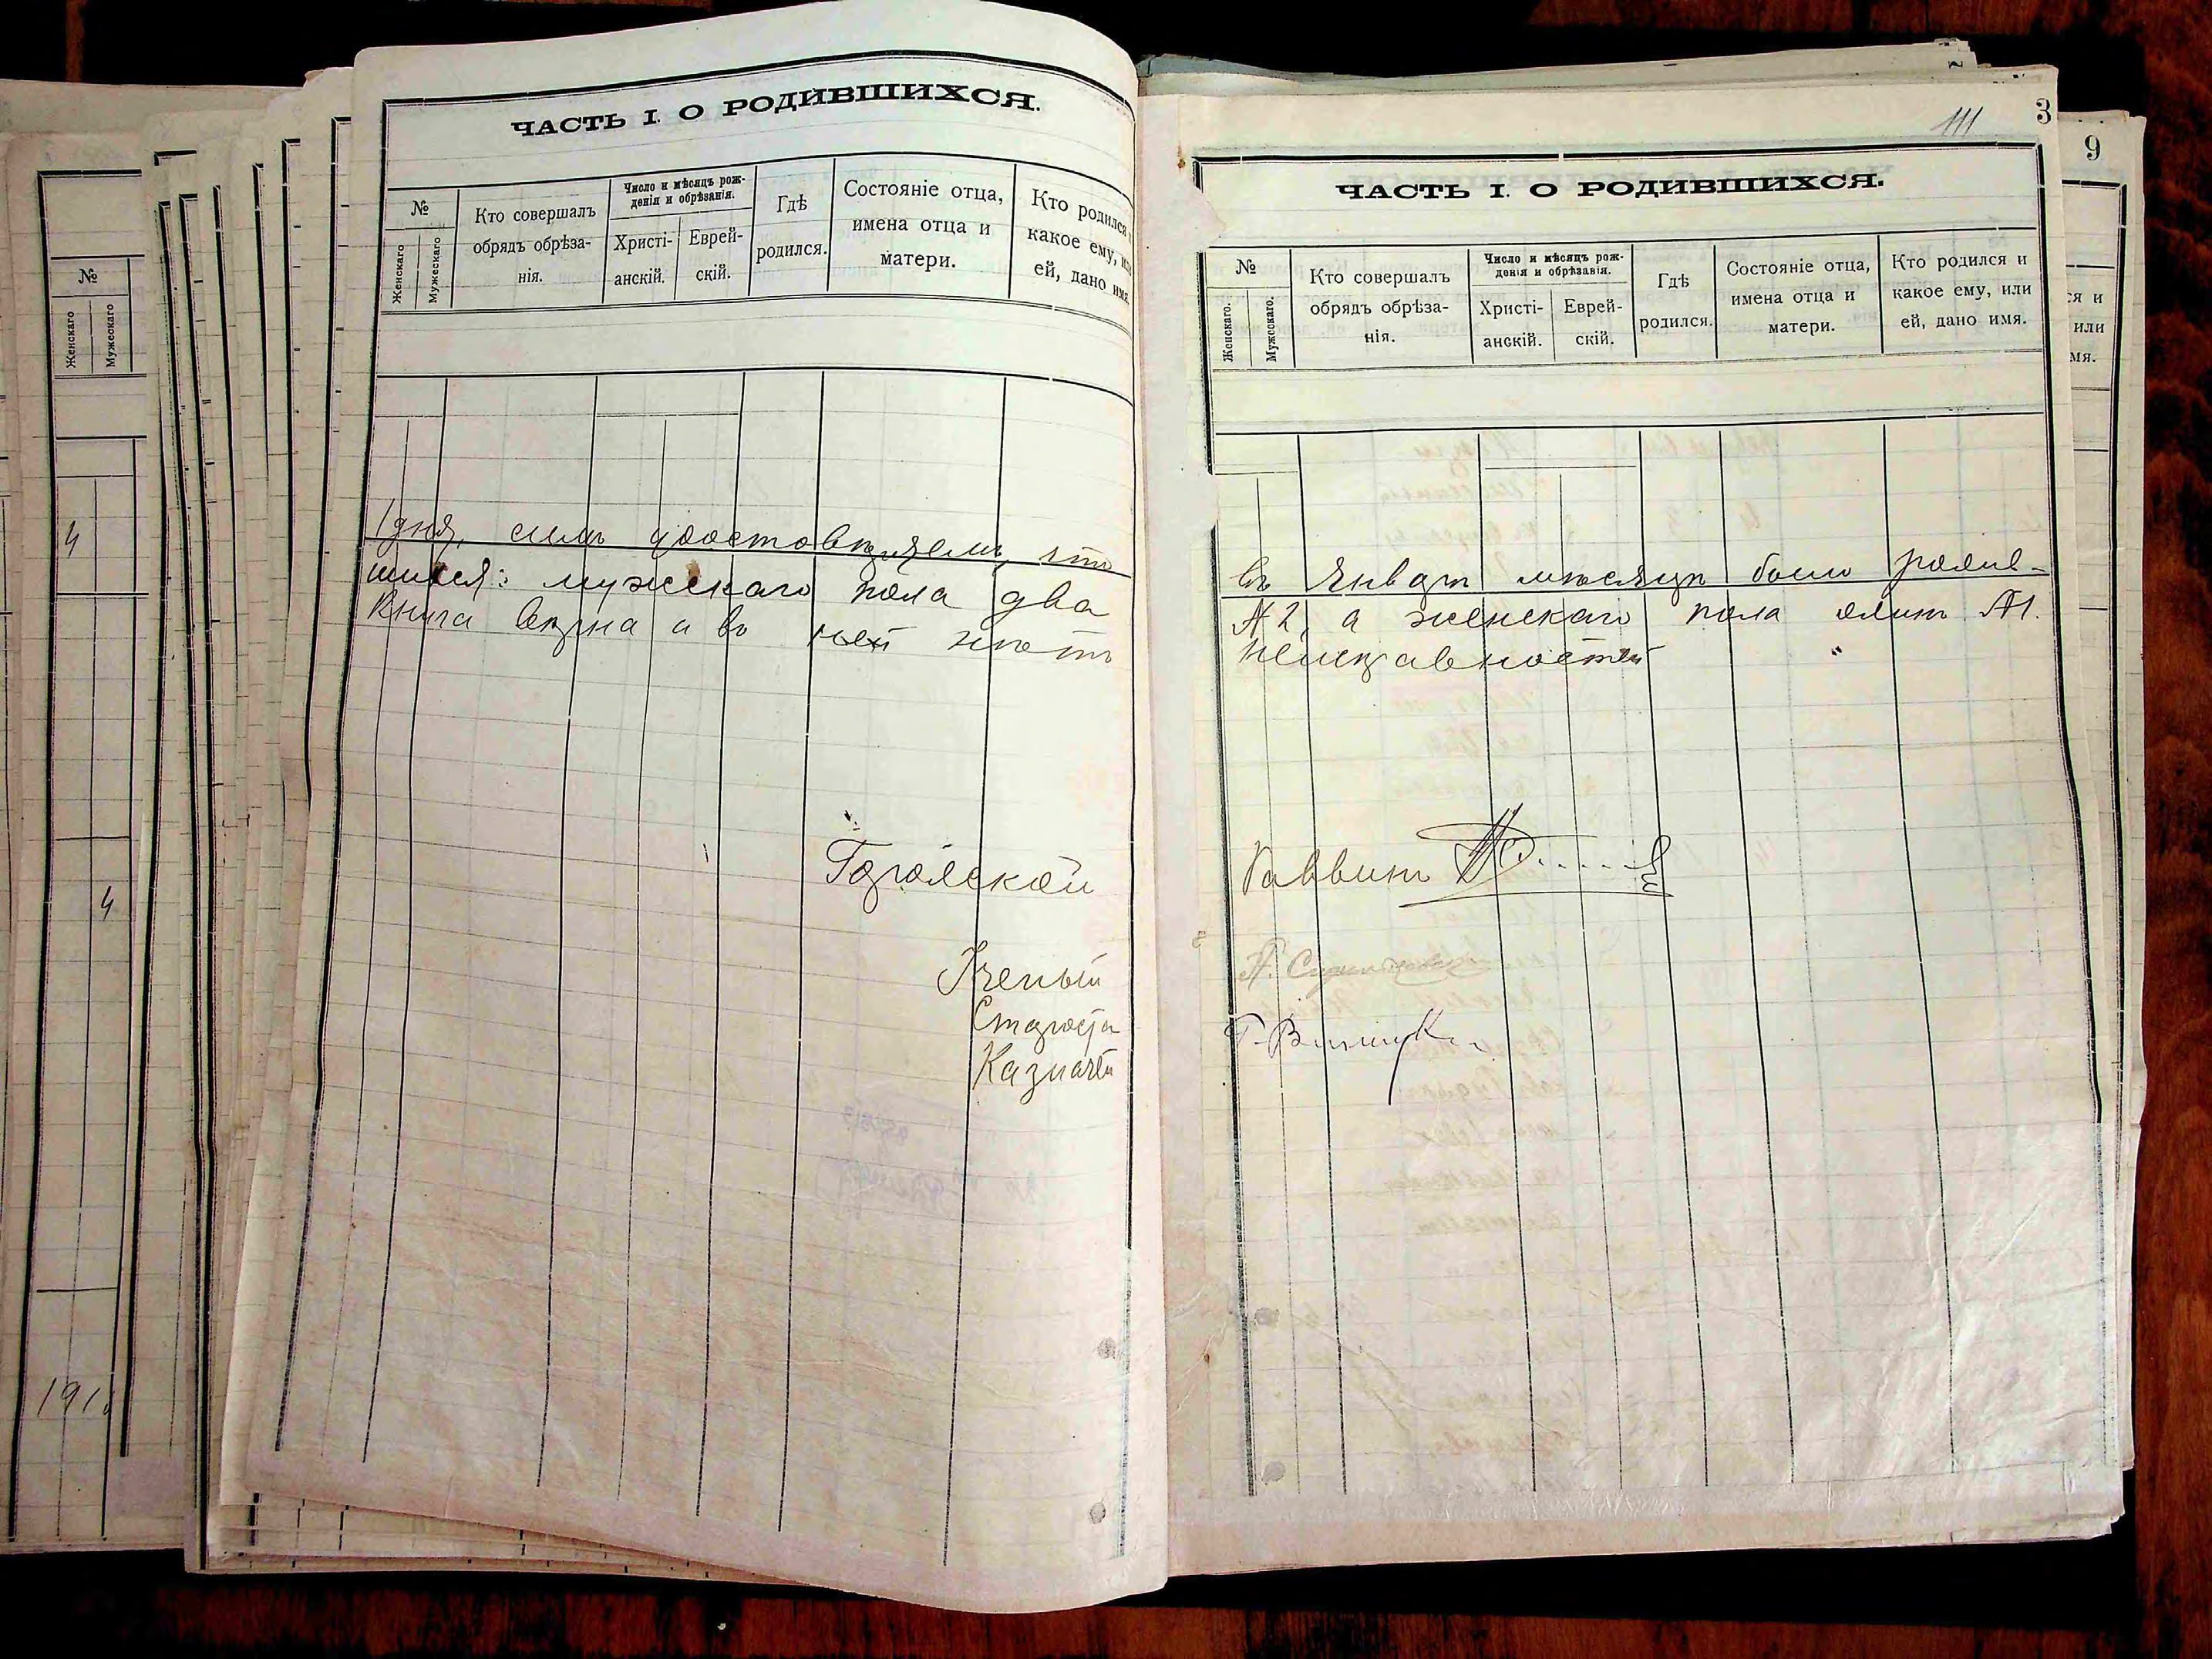 №
Женскаго
Мужескаго
4
4
191
ЧАСТЬ I. О РОДИВШИХСЯ.
№
Женскаго
Мужескаго
Кто совершалъ
обрядъ обрѣза-
нія.
Число и мѣсяцъ рож-
денія и обрѣзанія.
Христі-
анскій.
Еврей-
скій.
Гдѣ
родился.
Состояніе отца,
имена отца и
матери.
Кто родился
какое ему, или
ей, дано имя.
1 дня, симъ удостовѣряемъ, что
шихся: мужескаго пола два
Книга вѣрна и въ ней нѣтъ
Городской
Ученый
Староста
Казначей
111
3
ЧАСТЬ I. О РОДИВШИХСЯ.
№
Женскаго.
Мужескаго.
Кто совершалъ
обрядъ обрѣза-
нія.
Число и мѣсяцъ рож-
денія и обрѣзанія.
Христі-
анскій.
Еврей-
скій.
Гдѣ
родился.
Состояніе отца,
имена отца и
матери.
Кто родился и
какое ему, или
ей, дано имя.
въ Январѣ мѣсяцѣ было родив-
№ 2, а женскаго пола одинъ №1.
неисправностей
Раввинъ
9
ся и
или
мя.